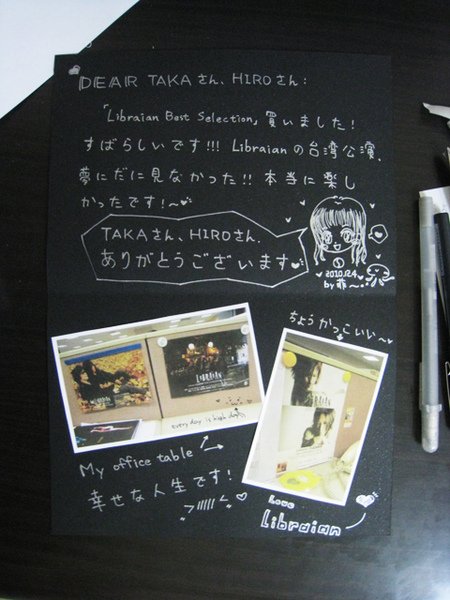 DEAR TAKAさん、HIROさん：
「Libraian Best Selection」買いました！
すばらしいです!!! Libraianの台湾公演、
夢にだに見なかった!! 本当に楽し
かったです！〜
TAKAさん、HIROさん、
ありがとうございます
2010.12.4
by 菲〜
ちょうかっこいい〜
LIBRAIAN
LIBRAIAN
everyday is high day
My office table
幸せな人生です！
Love
Libraian